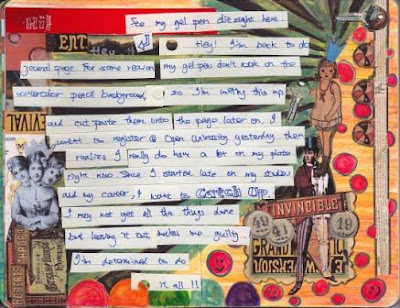 See my gel pen died right here..
Hey! I'm back to do
journal page. For some reason my gel pen don't work on the
watercolor pencil background, so I'm writing this up
and cut paste them onto the page later on. I
went to register @ Open University yesterday then
realize I really do have a lot on my plate
right now. Since I started late on my studies
and my career, I want to Catch Up.
I may not get all the things done
but leaving it out makes me guilty
I'm determined to do
it all !!
ENT
VIVAL
INVINCIBLE
GRAND
VERSION
19